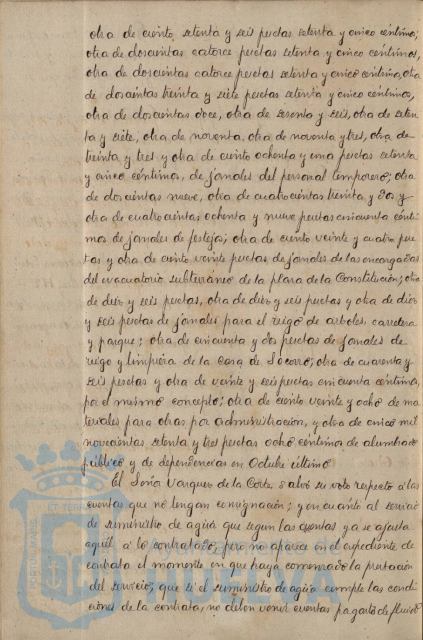 otra de ciento setenta y seis pesetas setenta y cinco céntimos;
otra de doscientas catorce pesetas setenta y cinco céntimos,
otra de doscientas catorce pesetas setenta y cinco céntimos, otra
de doscientas treinta y siete pesetas setenta y cinco céntimos,
otra de doscientas doce, otra de sesenta y seis, otra de seten
ta y siete, otra de noventa, otra de noventa y tres, otra de
treinta y tres y otra de ciento ochenta y una pesetas setenta
y cinco céntimos, de jornales del personal temporero; otra
de doscientas nueve, otra de cuatrocientas treinta y dos y
otra de cuatrocientas ochenta y nueve pesetas cincuenta cénti
mos de jornales de festejos; otra de ciento veinte y cuatro pese
tas y otra de ciento veinte pesetas de jornales de las encargadas
del evacuatorio subterráneo de la plaza de la Constitución; otra
de diez y seis pesetas, otra de diez y seis pesetas y otra de diez
y seis pesetas de jornales para el riego de arboles, carretera
y parque; otra de cincuenta y dos pesetas de jornales de
riego y limpieza de la Casa de Socorro; otra de cuarenta y
seis pesetas y otra de veinte y seis pesetas cincuenta céntimos,
por el mismo concepto; otra de ciento veinte y ocho de ma
teriales para obras por administración, y otra de cinco mil
novecientas setenta y tres pesetas ocho céntimos de alumbrado
público y de dependencias en Octubre último
El Señor Vazquez de la Corte salvó su voto respecto á las
cuentas que no tengan consignación; y en cuanto al servicio
de suministro de agua que segun las cuentas ya se ajusta
aquél á lo contratado, pero no aparece en el expediente de
contrata el momento en que haya comenzado la prestación
del servicio; que si el suministro de agua cumple las condi
ciones de la contrata, no deben venir cuentas por gasto de fluido
PORTUS MARIS ET TERRAE
Ayuntamiento de
HUELVA